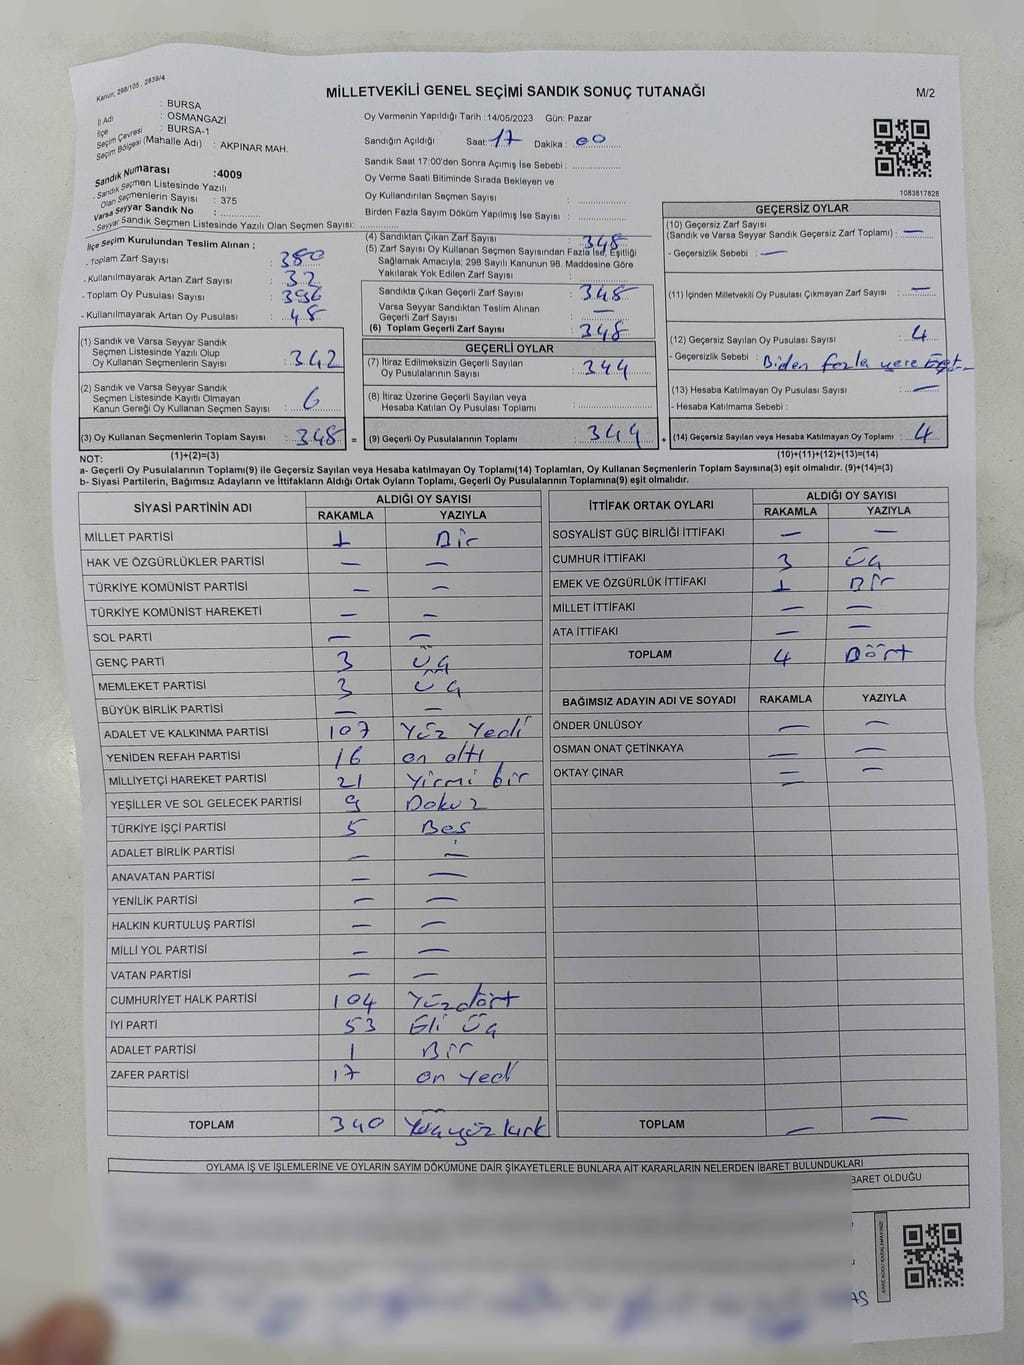 Kanun: 298/105, 2839/4
MİLLETVEKİLİ GENEL SEÇİMİ SANDIK SONUÇ TUTANAĞI
M/2
İl Adı : BURSA
İlçe : OSMANGAZİ
Seçim Çevresi : BURSA-1
Seçim Bölgesi (Mahalle Adı) : AKPINAR MAH.
Sandık Numarası :4009
- Sandık Seçmen Listesinde Yazılı
Olan Seçmenlerin Sayısı : 375
Varsa Seyyar Sandık No :
- Seyyar Sandık Seçmen Listesinde Yazılı Olan Seçmen Sayısı:
Oy Vermenin Yapıldığı Tarih :14/05/2023 Gün: Pazar
Sandığın Açıldığı Saat: 17 Dakika : 00
Sandık Saat 17:00'den Sonra Açımış İse Sebebi :
Oy Verme Saati Bitiminde Sırada Bekleyen ve
Oy Kullandırılan Seçmen Sayısı :
Birden Fazla Sayım Döküm Yapılmış İse Sayısı :
1083817828
İlçe Seçim Kurulundan Teslim Alınan ;
- Toplam Zarf Sayısı : 380
- Kullanılmayarak Artan Zarf Sayısı : 32
- Toplam Oy Pusulası Sayısı : 396
- Kullanılmayarak Artan Oy Pusulası : 48
(1) Sandık ve Varsa Seyyar Sandık
Seçmen Listesinde Yazılı Olup
Oy Kullanan Seçmenlerin Sayısı : 342
(2) Sandık ve Varsa Seyyar Sandık
Seçmen Listesinde Kayıtlı Olmayan
Kanun Gereği Oy Kullanan Seçmen Sayısı : 6
(3) Oy Kullanan Seçmenlerin Toplam Sayısı : 348 =
(4) Sandıktan Çıkan Zarf Sayısı : 348
(5) Zarf Sayısı Oy Kullanan Seçmen Sayısından Fazla İse, Eşitliği
Sağlamak Amacıyla; 298 Sayılı Kanunun 98. Maddesine Göre
Yakılarak Yok Edilen Zarf Sayısı :
Sandıkta Çıkan Geçerli Zarf Sayısı : 348
Varsa Seyyar Sandıktan Teslim Alınan
Geçerli Zarf Sayısı : —
(6) Toplam Geçerli Zarf Sayısı : 348
GEÇERLİ OYLAR
(7) İtiraz Edilmeksizin Geçerli Sayılan
Oy Pusulalarının Sayısı : 344
(8) İtiraz Üzerine Geçerli Sayılan veya
Hesaba Katılan Oy Pusulası Toplamı :
(9) Geçerli Oy Pusulalarının Toplamı : 344 +
GEÇERSİZ OYLAR
(10) Geçersiz Zarf Sayısı
(Sandık ve Varsa Seyyar Sandık Geçersiz Zarf Toplamı) : —
- Geçersizlik Sebebi : —
(11) İçinden Milletvekili Oy Pusulası Çıkmayan Zarf Sayısı : —
(12) Geçersiz Sayılan Oy Pusulası Sayısı : 4
- Geçersizlik Sebebi : Biden fazla yere
(13) Hesaba Katılmayan Oy Pusulası Sayısı : —
- Hesaba Katılmama Sebebi :
(14) Geçersiz Sayılan veya Hesaba Katılmayan Oy Toplamı : 4
NOT: (1)+(2)=(3) (10)+(11)+(12)+(13)=(14)
a- Geçerli Oy Pusulalarının Toplamı(9) ile Geçersiz Sayılan veya Hesaba katılmayan Oy Toplamı(14) Toplamları, Oy Kullanan Seçmenlerin Toplam Sayısına(3) eşit olmalıdır. (9)+(14)=(3)
b- Siyasi Partilerin, Bağımsız Adayların ve İttifakların Aldığı Ortak Oyların Toplamı, Geçerli Oy Pusulalarının Toplamına(9) eşit olmalıdır.
SİYASİ PARTİNİN ADI ALDIĞI OY SAYISI
RAKAMLA YAZIYLA
MİLLET PARTİSİ 1 Bir
HAK VE ÖZGÜRLÜKLER PARTİSİ — —
TÜRKİYE KOMÜNİST PARTİSİ — —
TÜRKİYE KOMÜNİST HAREKETİ — —
SOL PARTİ — —
GENÇ PARTİ 3 Üç
MEMLEKET PARTİSİ 3 Üç
BÜYÜK BİRLİK PARTİSİ — —
ADALET VE KALKINMA PARTİSİ 107 Yüz Yedi
YENİDEN REFAH PARTİSİ 16 on altı
MİLLİYETÇİ HAREKET PARTİSİ 21 Yirmi bir
YEŞİLLER VE SOL GELECEK PARTİSİ 9 Dokuz
TÜRKİYE İŞÇİ PARTİSİ 5 Beş
ADALET BİRLİK PARTİSİ — —
ANAVATAN PARTİSİ — —
YENİLİK PARTİSİ — —
HALKIN KURTULUŞ PARTİSİ — —
MİLLİ YOL PARTİSİ — —
VATAN PARTİSİ — —
CUMHURİYET HALK PARTİSİ 104 Yüzdört
İYİ PARTİ 53 Elli Üç
ADALET PARTİSİ 1 Bir
ZAFER PARTİSİ 17 on yedi
TOPLAM 340 Üçyüz kırk
İTTİFAK ORTAK OYLARI ALDIĞI OY SAYISI
RAKAMLA YAZIYLA
SOSYALİST GÜÇ BİRLİĞİ İTTİFAKI — —
CUMHUR İTTİFAKI 3 Üç
EMEK VE ÖZGÜRLÜK İTTİFAKI 1 Bir
MİLLET İTTİFAKI — —
ATA İTTİFAKI — —
TOPLAM 4 Dört
BAĞIMSIZ ADAYIN ADI VE SOYADI RAKAMLA YAZIYLA
ÖNDER ÜNLÜSOY — —
OSMAN ONAT ÇETİNKAYA — —
OKTAY ÇINAR — —
TOPLAM — —
OYLAMA İŞ VE İŞLEMLERİNE VE OYLARIN SAYIM DÖKÜMÜNE DAİR ŞİKAYETLERLE BUNLARA AİT KARARLARIN NELERDEN İBARET BULUNDUKLARI
BARET OLDUĞU
KARE KODU KARALAMAYINIZ!